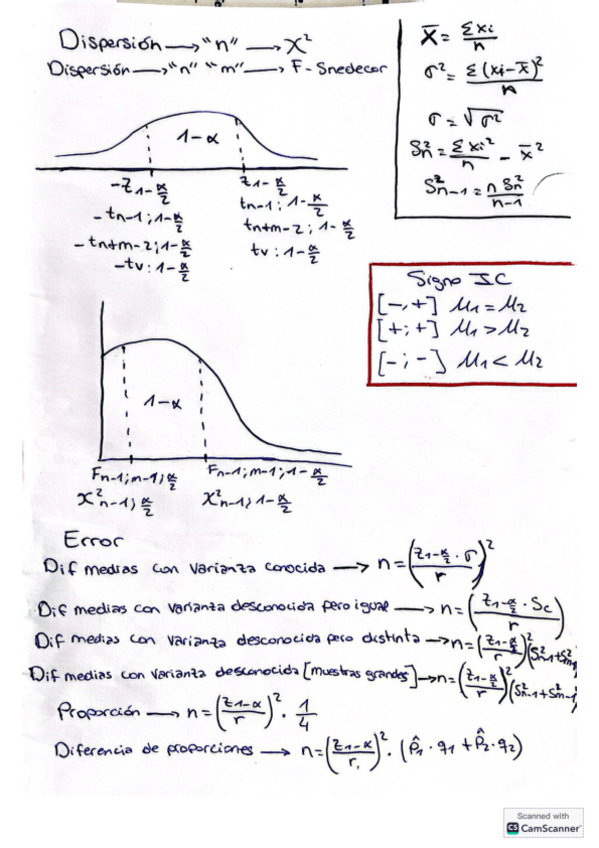 Dispersión → "n" → X²
Dispersión → "n" "m" → F-Snedecor
X̄ = Σxi/n
σ² = Σ(xi-x̄)²/n
σ = √σ²
Sn² = Σxi²/n - x̄²
S²n-1 = n Sn²/n-1
1-α
-z1-α/2 z1-α/2
-tn-1;1-α/2 tn-1;1-α/2
-tn+m-2;1-α/2 tn+m-2;1-α/2
-tv:1-α/2 tv:1-α/2
Signo IC
[-,+] μ1=μ2
[+;+] μ1>μ2
[-;-] μ1<μ2
1-α
Fn-1;m-1;α/2 Fn-1;m-1;1-α/2
X²n-1;α/2 X²n-1;1-α/2
Error
Dif medias con varianza conocida → n=(z1-α/2·σ/r)²
Dif medias con varianza desconocida pero igual → n=(z1-α/2·Sc/r)
Dif medias con varianza desconocida pero distinta → n=(z1-α/2/r)²(S²n-1+S²m-1
Dif medias con varianza desconocida [muestras grandes] → n=(z1-α/2/r)²(S²n-1+S²m-1
Proporción → n=(z1-α/r)²·1/4
Diferencia de proporciones → n=(z1-α/r)²·(p̂1·q1+p̂2·q2)
Scanned with
CS CamScanner